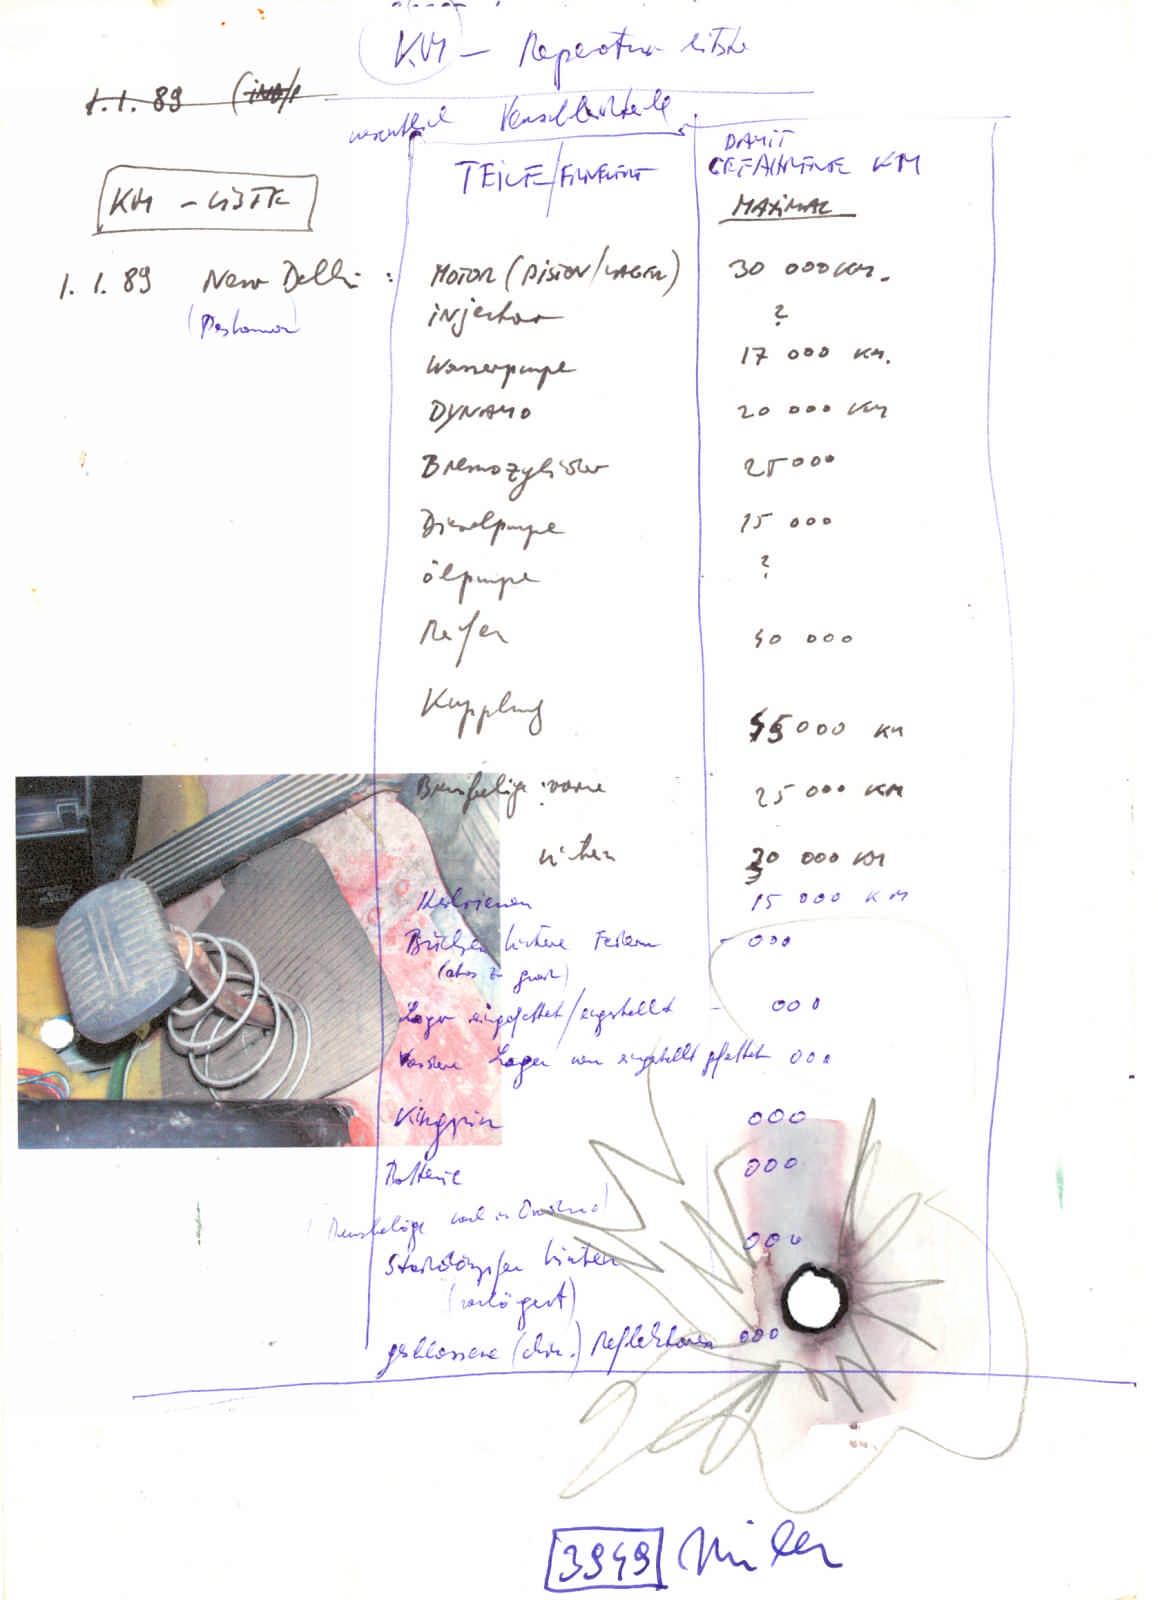 KM - Reperatur Liste
1.1.89 (IND/P
wesentlich Verschleissteile
TEILE/ELEMENT
DAMIT
GEFAHRENE KM
MAXIMAL
KM - LISTE
1.1.89 New Delhi : MOTOR (PISTON/LAGER) 30 000 KM.
injector ?
Wasserpumpe 17 000 KM.
DYNAMO 20 000 KM
Bremszylinder 25 000
Dieselpumpe 15 000
ölpumpe ?
Reifen 40 000
Kupplung 45 000 KM
Bremsbeläge vorne 25 000 KM
hinten 30 000 KM
Keilriemen 15 000 KM
Büchsen hintere Federn - 000
(etwas zu gross)
Lager eingefettet/eingestellt - 000
Vordere Lager neu eingestellt gefettet 000
Kingpin 000
Batterie 000
Bremsbeläge
Stossdämpfer hinten 000
(verlängert)
geschlossene (chin.) Reflektoren 000
3949